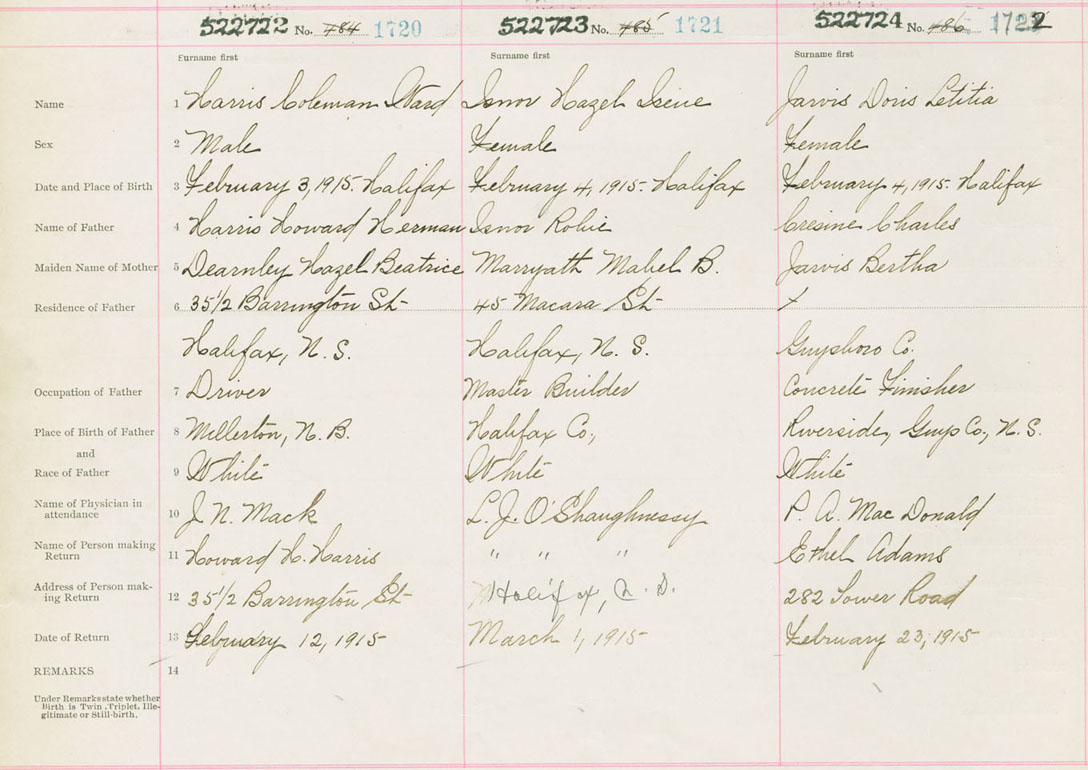 522722 No. 784 1720 522723 No. 785 1721 522724 No. 786 1722
Surname first Surname first Surname first
Name 1 Harris Coleman Ward Isnor Hazel Irene Jarvis Doris Letitia
Sex 2 Male Female Female
Date and Place of Birth 3 February 3, 1915. Halifax February 4, 1915. Halifax February 4, 1915. Halifax
Name of Father 4 Harris Howard Herman Isnor Robie Cresine Charles
Maiden Name of Mother 5 Dearnley Hazel Beatrice Marryath Mabel B. Jarvis Bertha
Residence of Father 6 351/2 Barrington St 45 Macara St x
Halifax, N. S. Halifax, N. S. Guysboro Co.
Occupation of Father 7 Driver Master Builder Concrete Finisher
Place of Birth of Father 8 Millerton, N. B. Halifax Co., Riverside, Guys Co., N. S.
and
Race of Father 9 White White White
Name of Physician in attendance 10 J. N. Mack L. J. O'Shaughnessy P. A. MacDonald
Name of Person making Return 11 Howard H. Harris " " " Ethel Adams
Address of Person making Return 12 351/2 Barrington St Halifax, N. S. 282 Tower Road
Date of Return 13 February 12, 1915 March 1, 1915 February 23, 1915
REMARKS 14
Under Remarks state whether
Birth is Twin, Triplet, Ille-
gitimate or Still-birth.